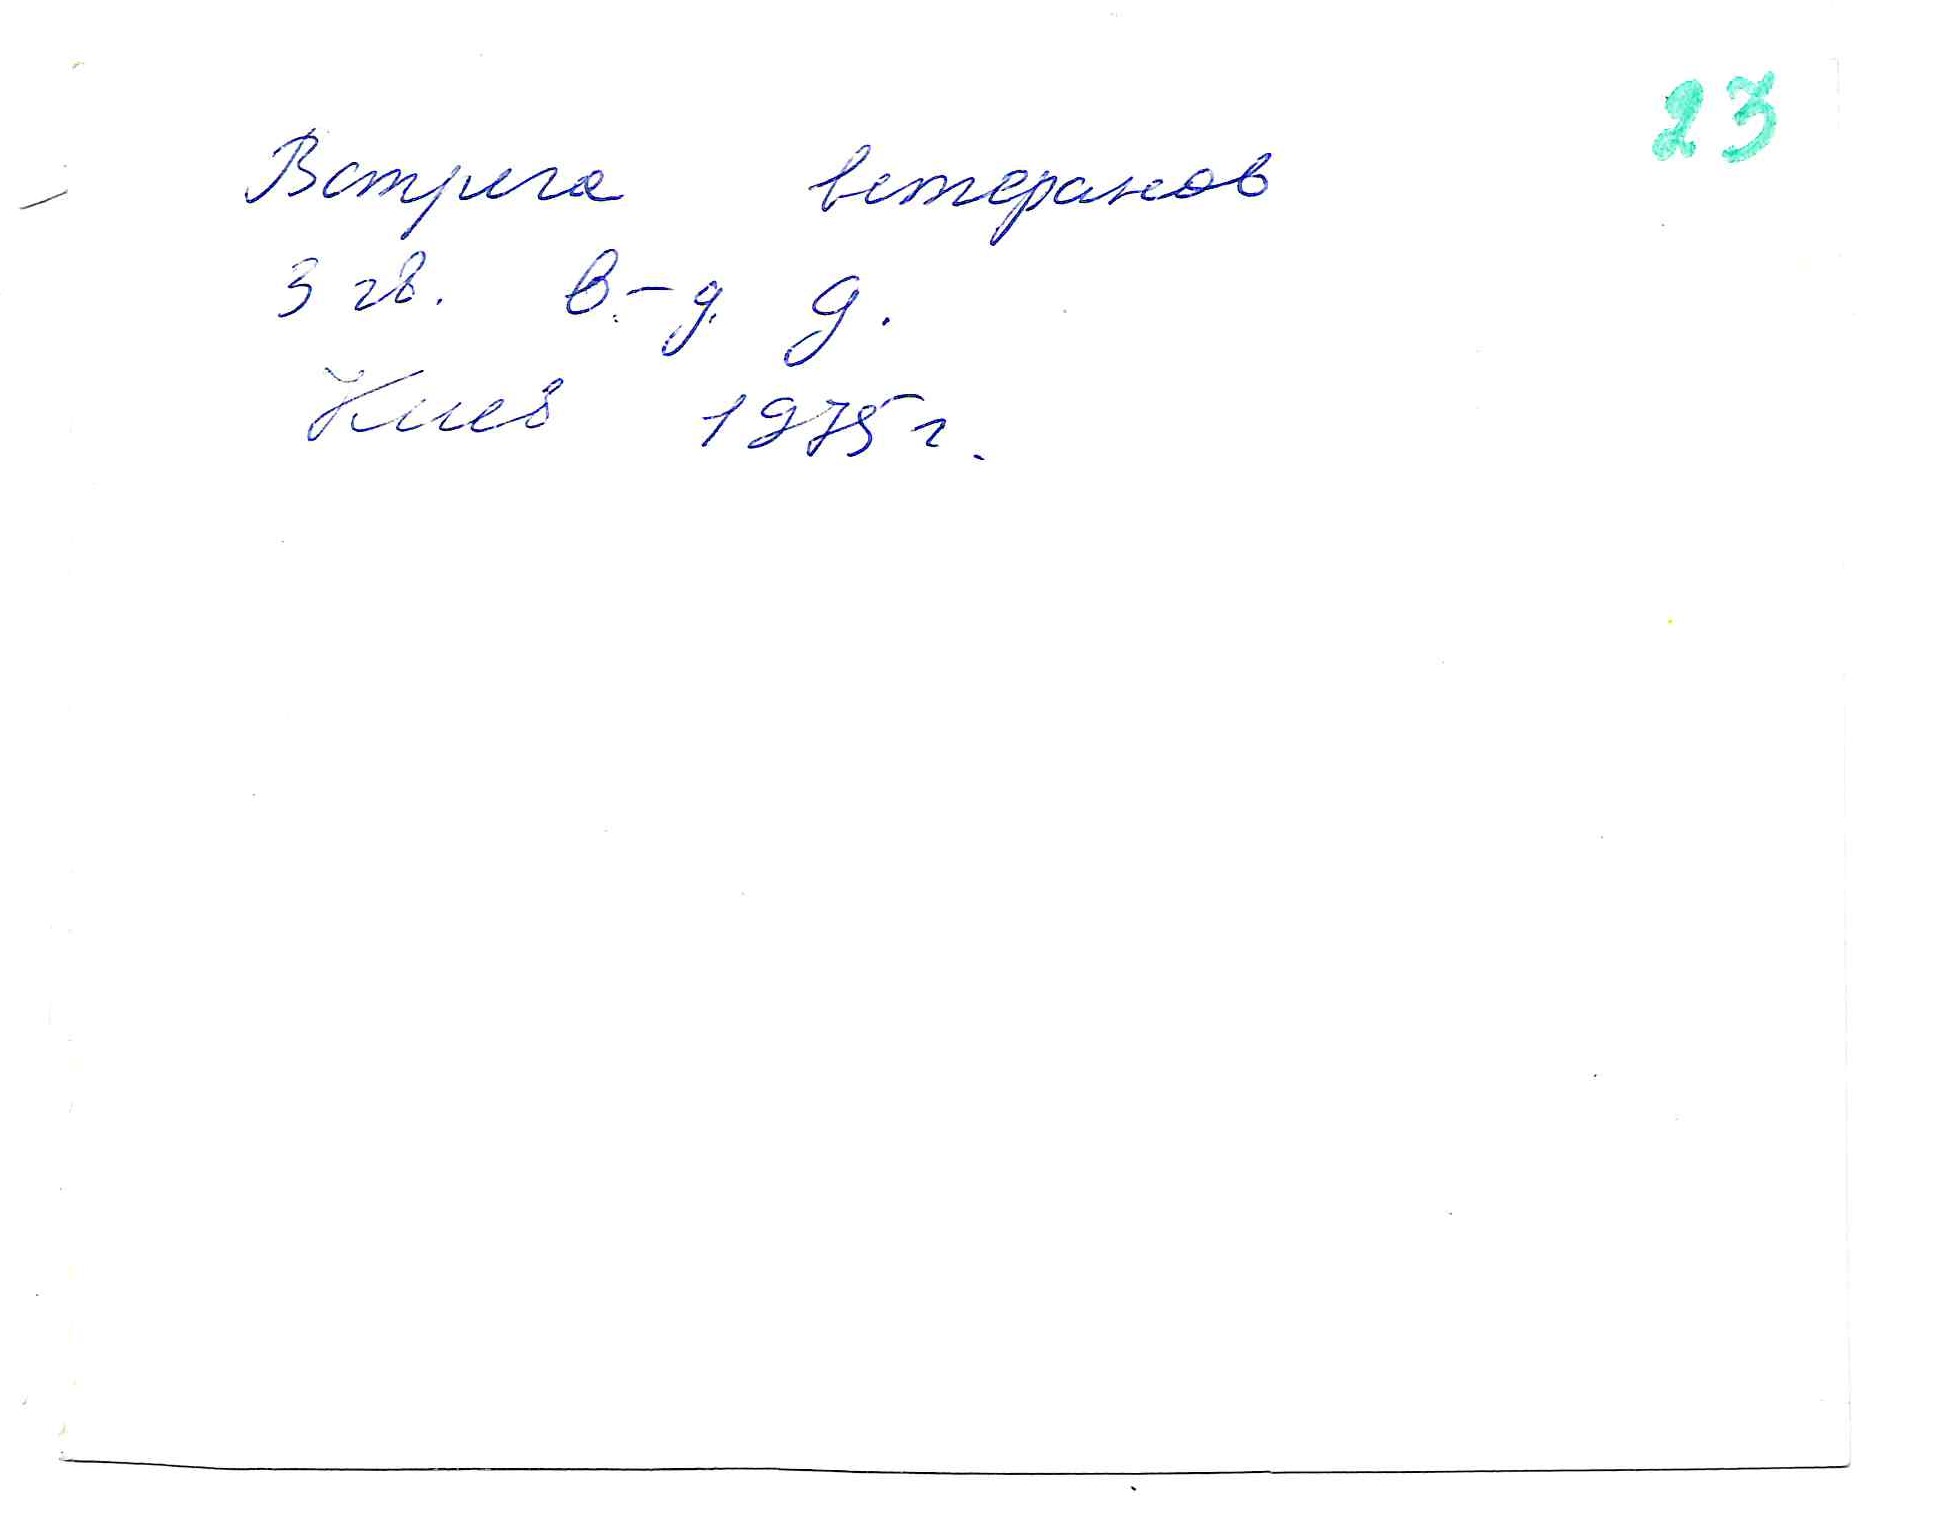 23
Встреча ветеранов
3 гв. в-д д.
Киев 1975 г.